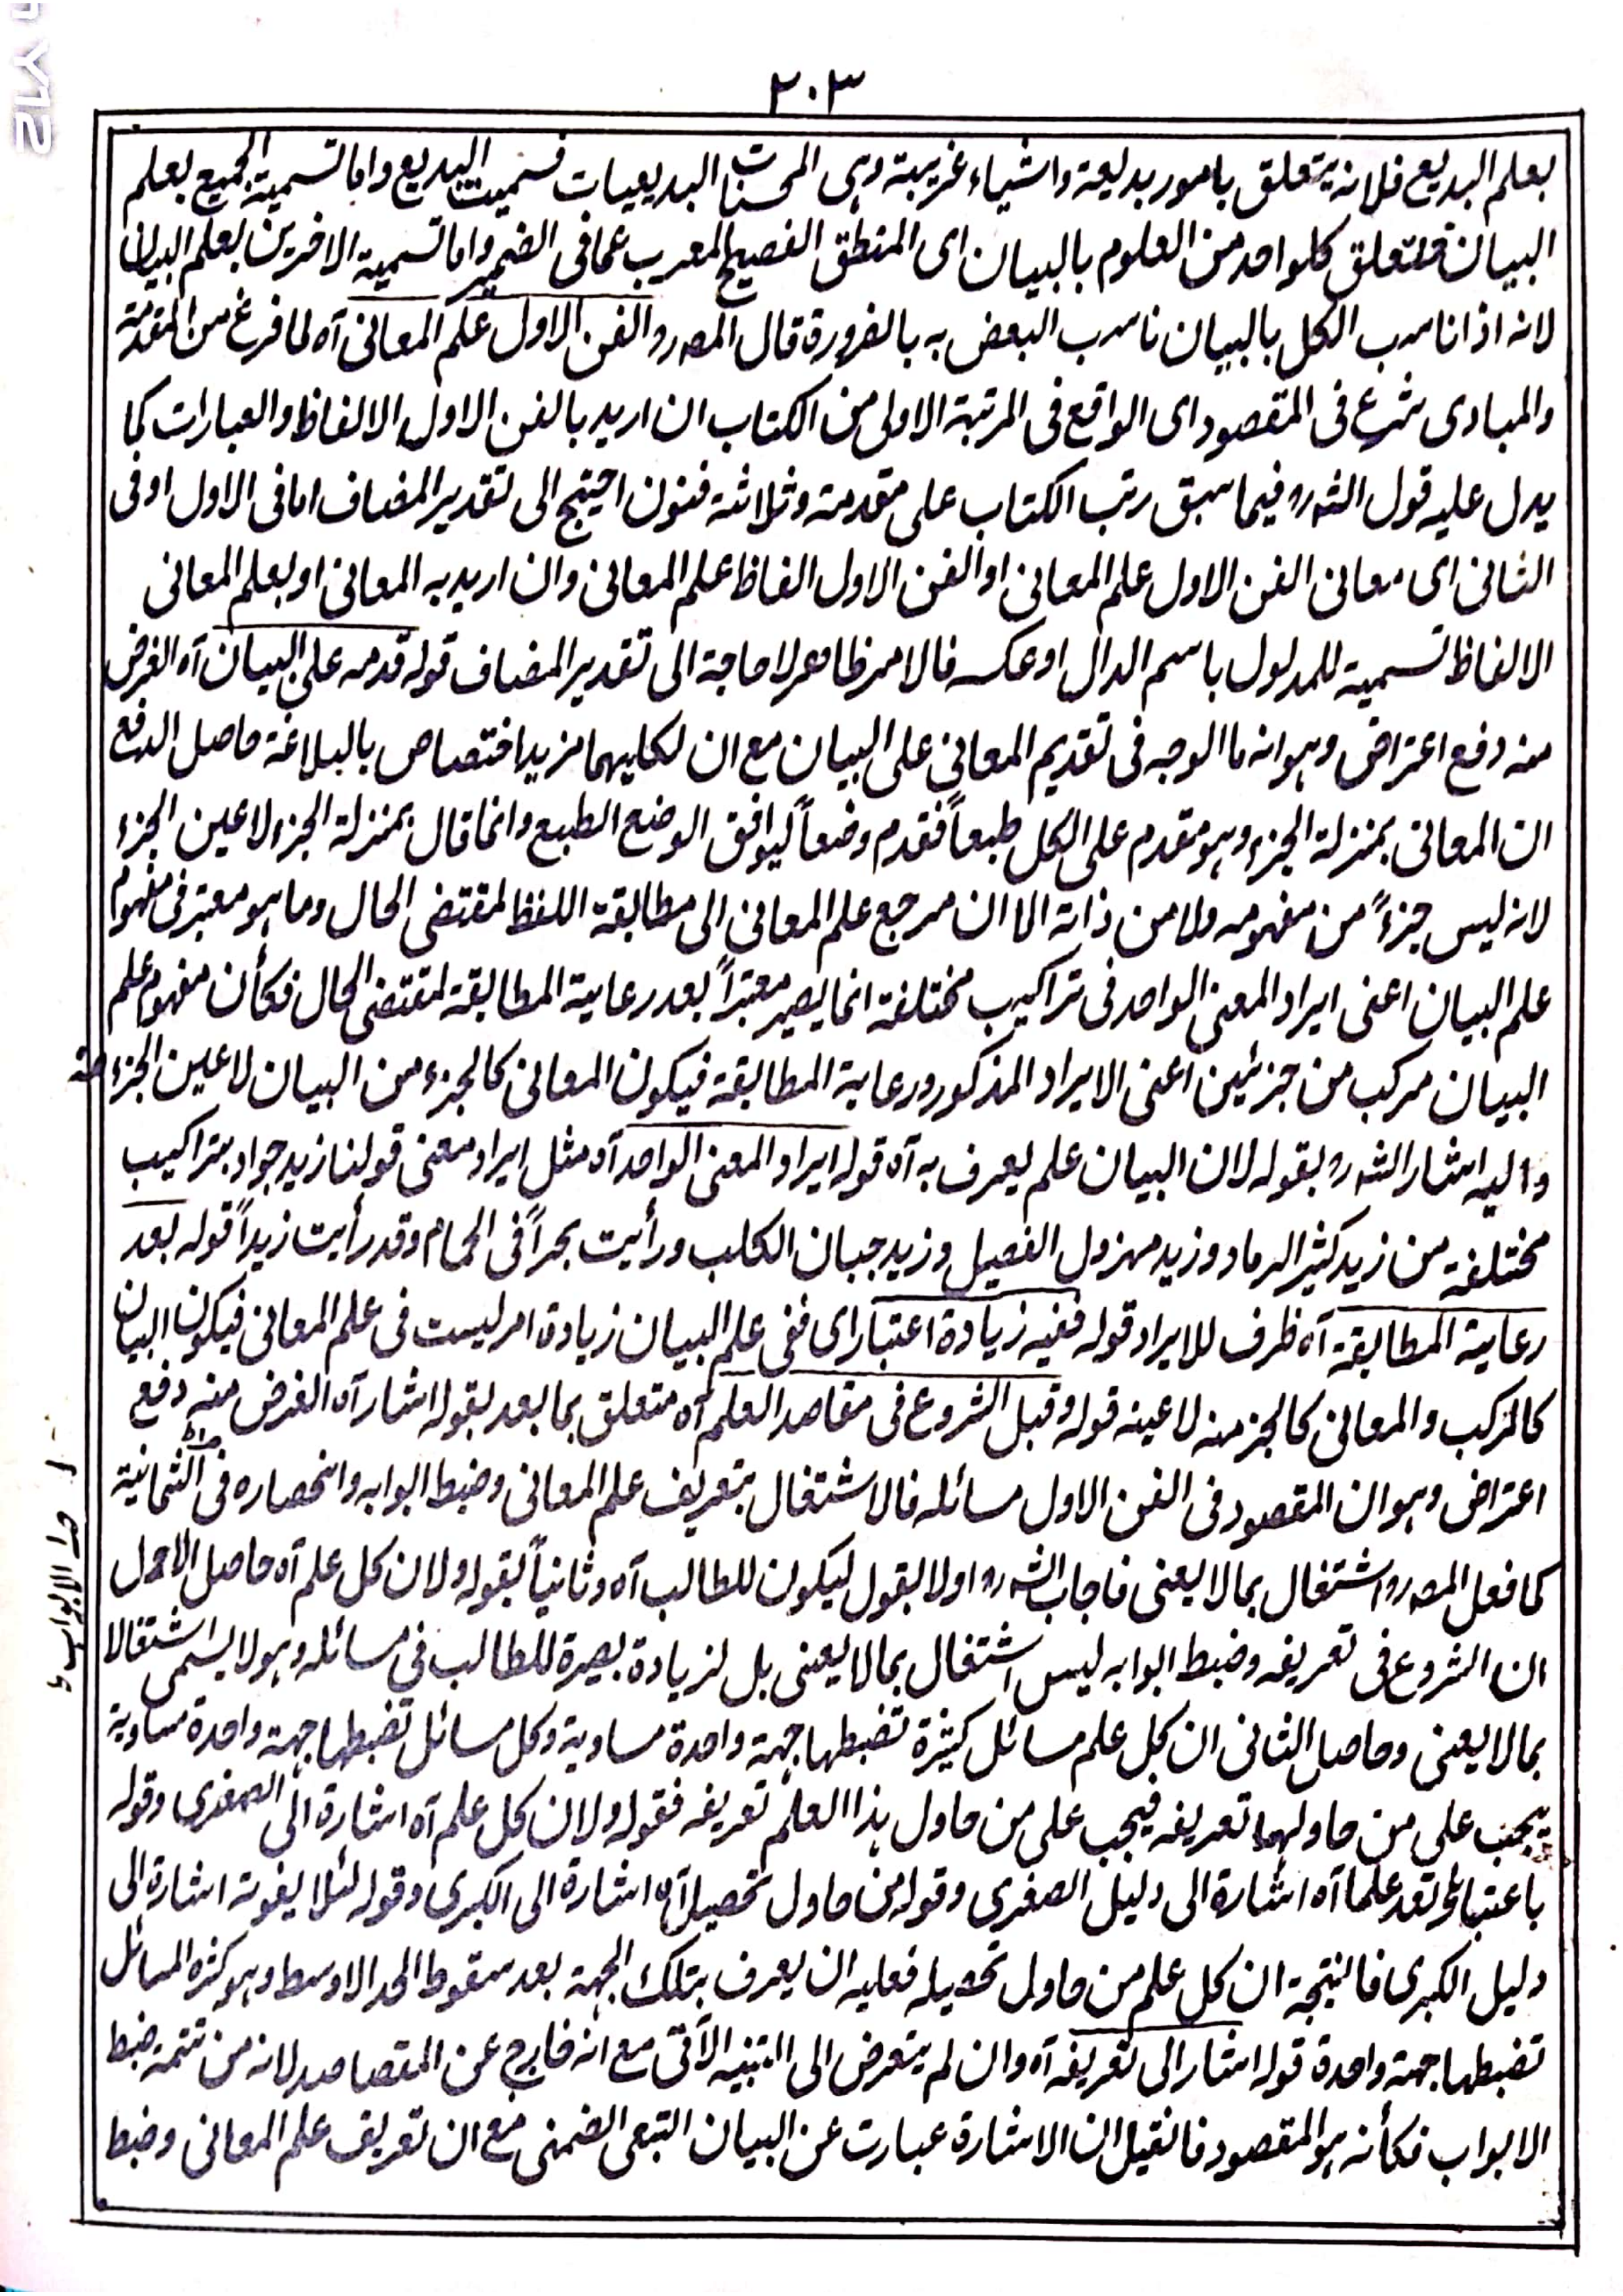 ٢٠٣
بعلم البديع فلانه يتعلق بامور بديعة واشياء غريبة وهى المحسنات البديعيات فسميت البديع واما تسمية الجميع بعلم
البيان فلتعلق كلواحد من العلوم بالبيان اى المنطق الفصيح المعرب عما فى الضمير واما تسمية الاخرين بعلم البيان
لانه اذا ناسب الكل بالبيان ناسب البعض به بالضرورة قال المصـ رو الفن الاول علم المعانى آه لما فرغ من المقدمة
والمبادى شرع فى المقصود اى الواقع فى المرتبة الاولى من الكتاب ان اريد بالفن الاول الالفاظ والعبارات كما
يدل عليه قول الشـ رو فيما سبق رتب الكتاب على مقدمة وثلاثة فنون احتيج الى تقدير المضاف اما فى الاول او فى
الثانى اى معانى الفن الاول علم المعانى او الفن الاول الفاظ علم المعانى وان اريد به المعانى او بعلم المعانى
الالفاظ تسمية للمدلول باسم الدال او عكسه فالامر ظاهر لا حاجة الى تقدير المضاف قوله قدمه على البيان آه الغرض
منه دفع اعتراض وهو انه ما الوجه فى تقديم المعانى على البيان مع ان لكليهما مزيد اختصاص بالبلاغة حاصل الدفع
ان المعانى بمنزلة الجزء وهو مقدم على الكل طبعاً فقدم وضعاً ليوافق الوضع الطبع وانما قال بمنزلة الجزء لا عين الجزء
لانه ليس جزءً من مفهومه ولا من ذاته الا ان مرجع علم المعانى الى مطابقة اللفظ لمقتضى الحال وما هو معتبر فى مفهوم
علم البيان اعنى ايراد المعنى الواحد فى تراكيب مختلفة انما يصير معتبراً بعد رعاية المطابقة لمقتضى الحال فكأن مفهوم علم
البيان مركب من جزئين اعنى الايراد المذكور ورعاية المطابقة فيكون المعانى كالجزء من البيان لا عين الجزء منه
واليه اشار الشـ رو بقوله لان البيان علم يعرف به آه قوله ايراد المعنى الواحد آه مثل ايراد معنى قولنا زيد جواد بتراكيب
مختلفة من زيد كثير الرماد وزيد مهزول الفصيل وزيد جبان الكلب ورأيت بحراً فى الحمام وقد رأيت زيداً قوله بعد
رعاية المطابقة آه ظرف للايراد قوله ففيه زيادة اعتبار اى ففى علم البيان زيادة امر ليست فى علم المعانى فيكون البيان
كالمركب والمعانى كالجز منه لا عينه قوله وقبل الشروع فى مقاصد العلم آه متعلق بما بعد بقوله اشار آه الغرض منه دفع
اعتراض وهو ان المقصود فى الفن الاول مسائله فالاشتغال بتعريف علم المعانى وضبط ابوابه وانحصاره فى الثمانية
كما فعل المصـ رو اشتغال بما لا يعنى فاجاب الشـ رو اولا بقول ليكون للطالب آه وثانياً بقوله ولان كل علم آه حاصل الاول
ان الشروع فى تعريفه وضبط ابوابه ليس اشتغال بما لا يعنى بل لزيادة بصيرة للطالب فى مسائله وهو لا يسمى اشتغالا
بما لا يعنى وحاصل الثانى ان كل علم مسائل كثيرة تضبطها جهة واحدة مساوية وكل مسائل تضبطها جهة واحدة مساوية
يجب على من حاولها تعريفه فيجب على من حاول هذا العلم تعريفه فقوله ولان كل علم آه اشارة الى الصغرى وقوله
باعتبارها تعد علما آه اشارة الى دليل الصغرى وقوله من حاول تحصيل آه اشارة الى الكبرى وقوله لئلا يفوته اشارة الى
دليل الكبرى فالنتيجة ان كل علم من حاول تحصيله فعليه ان يعرف بتلك الجهة بعد سقوط الحد الاوسط وهو كثرة المسائل
تضبطها جهة واحدة قوله اشار الى تعريفه آه وان لم يتعرض الى التنبيه الآتى مع انه خارج عن المقصاصد لانه من تتمة ضبط
الابواب فكأنه هو المقصود فانقيل ان الاشارة عبارت عن البيان التبعى الضمنى مع ان تعريف علم المعانى وضبط
الابواب